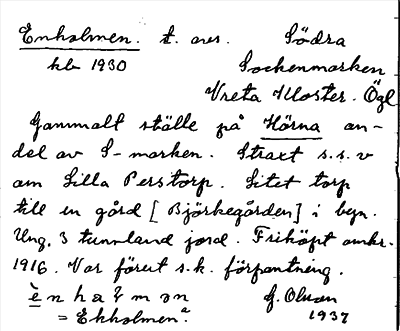 Enholmen. t. avs. Södra
kb 1930 Sockenmarken
Vreta Kloster. Ögl
Gammalt ställe på Hörna an-
del av S-marken. Straxt s.s.v
om Lilla Perstorp. Litet torp
till en gård [Björkegården] i byn.
Ung. 3 tunnland jord. Friköpt omkr.
1916. Var förut s.k. förpantning.
ènhaɫmən f. Olson
= Ekholmen. 1937